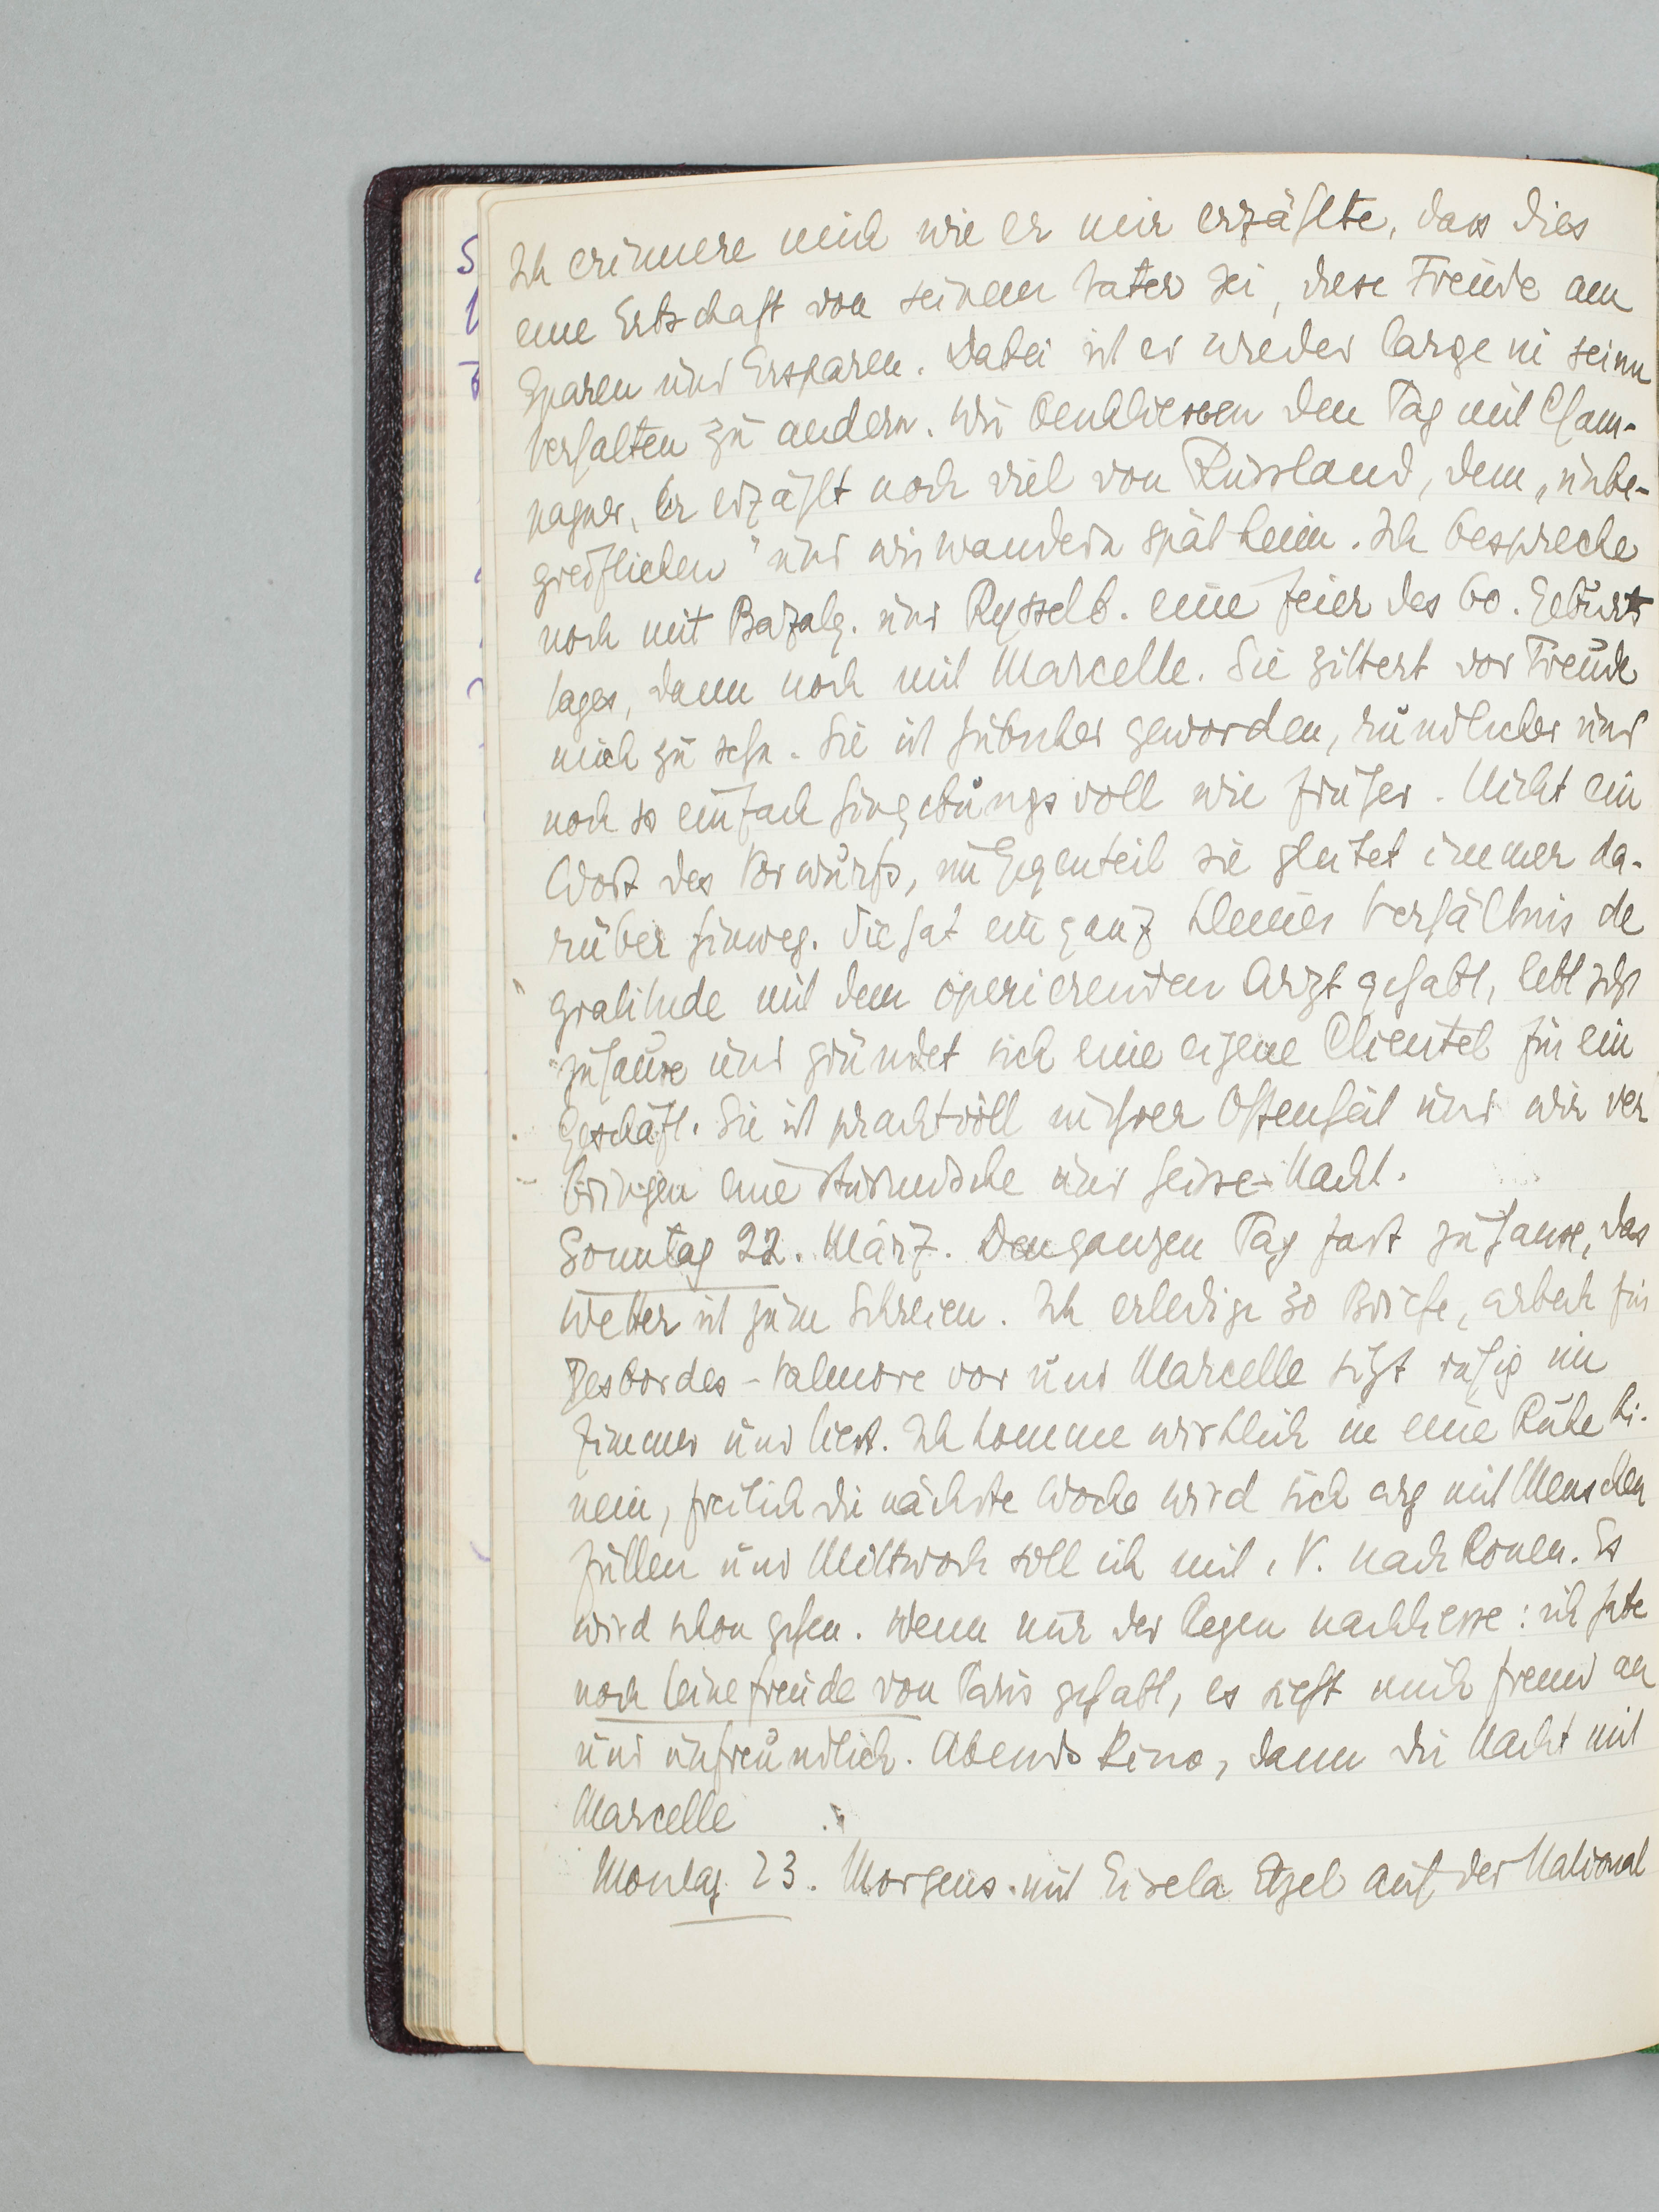 Ich erinnere mich wie er mir erzählte, dass dies
eine Erbschaft von seinem Vater sei, diese Freude am
Sparen und Ersparen. Dabei ist er wieder large in seinem
Verhalten zu andern. Wir beschliessen den Tag mit Cham-
pagner, Er erzählt noch viel von Russland, dem „unbe-
greiflichen" und wir wandern spät heim. Ich bespreche
noch mit Bazalg. und Rysselb. eine Feier des 60. Geburts
tages, dann noch mit Marcelle. Sie zittert vor Freude
mich zu sehn. Sie ist hübscher geworden, rundlicher und
noch so einfach hingebungsvoll wie früher. Nicht ein
Wort des Vorwurfs, im Gegenteil sie gleitet immer da-
rüber hinweg. Sie hat ein ganz kleines Verhältnis de
gratitude mit dem operierenden Arzt gehabt, lebt jetzt
zuhause und gründet sich eine eigene Clientel für ein
Geschäft. Sie ist prachtvoll in ihrer Offenheit und wir ver
bringen eine stürmische und heisse Nacht.
Sonntag 22. März. Den ganzen Tag fast zuhause, das
Wetter ist zum Schreien. Ich erledige 30 Briefe, arbeite für
Desbordes-Valmore vor und Marcelle sitzt ruhig im
Zimmer und liest. Ich komme wirklich in eine Ruhe hi-
nein, freilich die nächste Woche wird sich arg mit Menschen
füllen und Mittwoch soll ich mit V. nach Rouen. Es
wird schon gehen. Wenn nur der Regen nachliesse: ich habe
noch keine Freude von Paris gehabt, es sieht mich fremd an
und unfreundlich. Abends Kino, dann die Nacht mit
Marcelle
Montag 23. Morgens mit Gisela Etzel auf der National